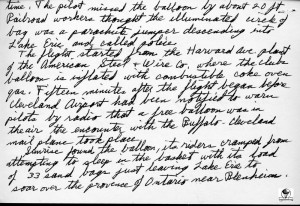 time. The pilot missed the balloon by about 20 ft.
Railroad workers thought the illuminated wreck of
bag was a parachute jumper descending into
Lake Erie and called police.
The flight started from the Harvard Ave. plant
of the American Steel & Wire Co., where the clubs
balloon is inflated with combustible coke oven
gas. Fifteen minutes after the flight began before
Cleveland Airport had been notified to warn
pilots by radio that a free balloon was in
the air the encounter with the Buffalo-Cleveland
mail plane took place.
Sunrise found the balloon, its riders cramped from
attempting to sleep in the basket with its load
of 33 sand bags just leaving Lake Erie to
soar over the province of Ontario near Blenheim.